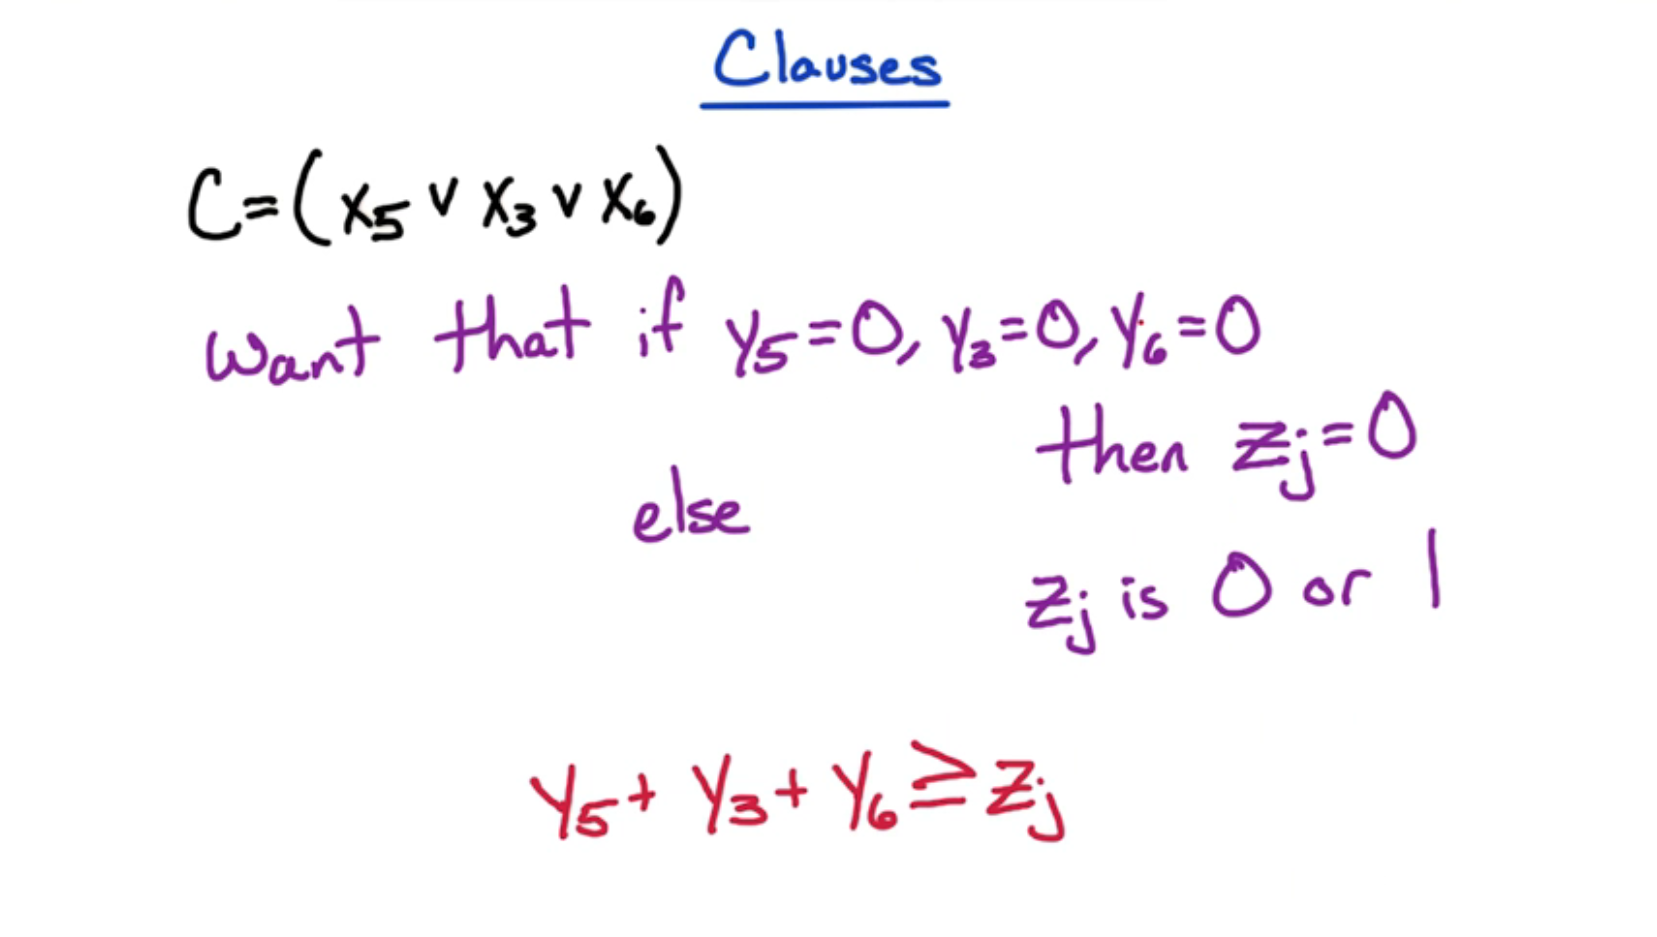 Clauses
C=(x₅ ∨ x₃ ∨ x₆)
Want that if y₅=0, y₃=0, y₆=0
then zⱼ=0
else
zⱼ is 0 or 1
y₅+ y₃+ y₆≥zⱼ